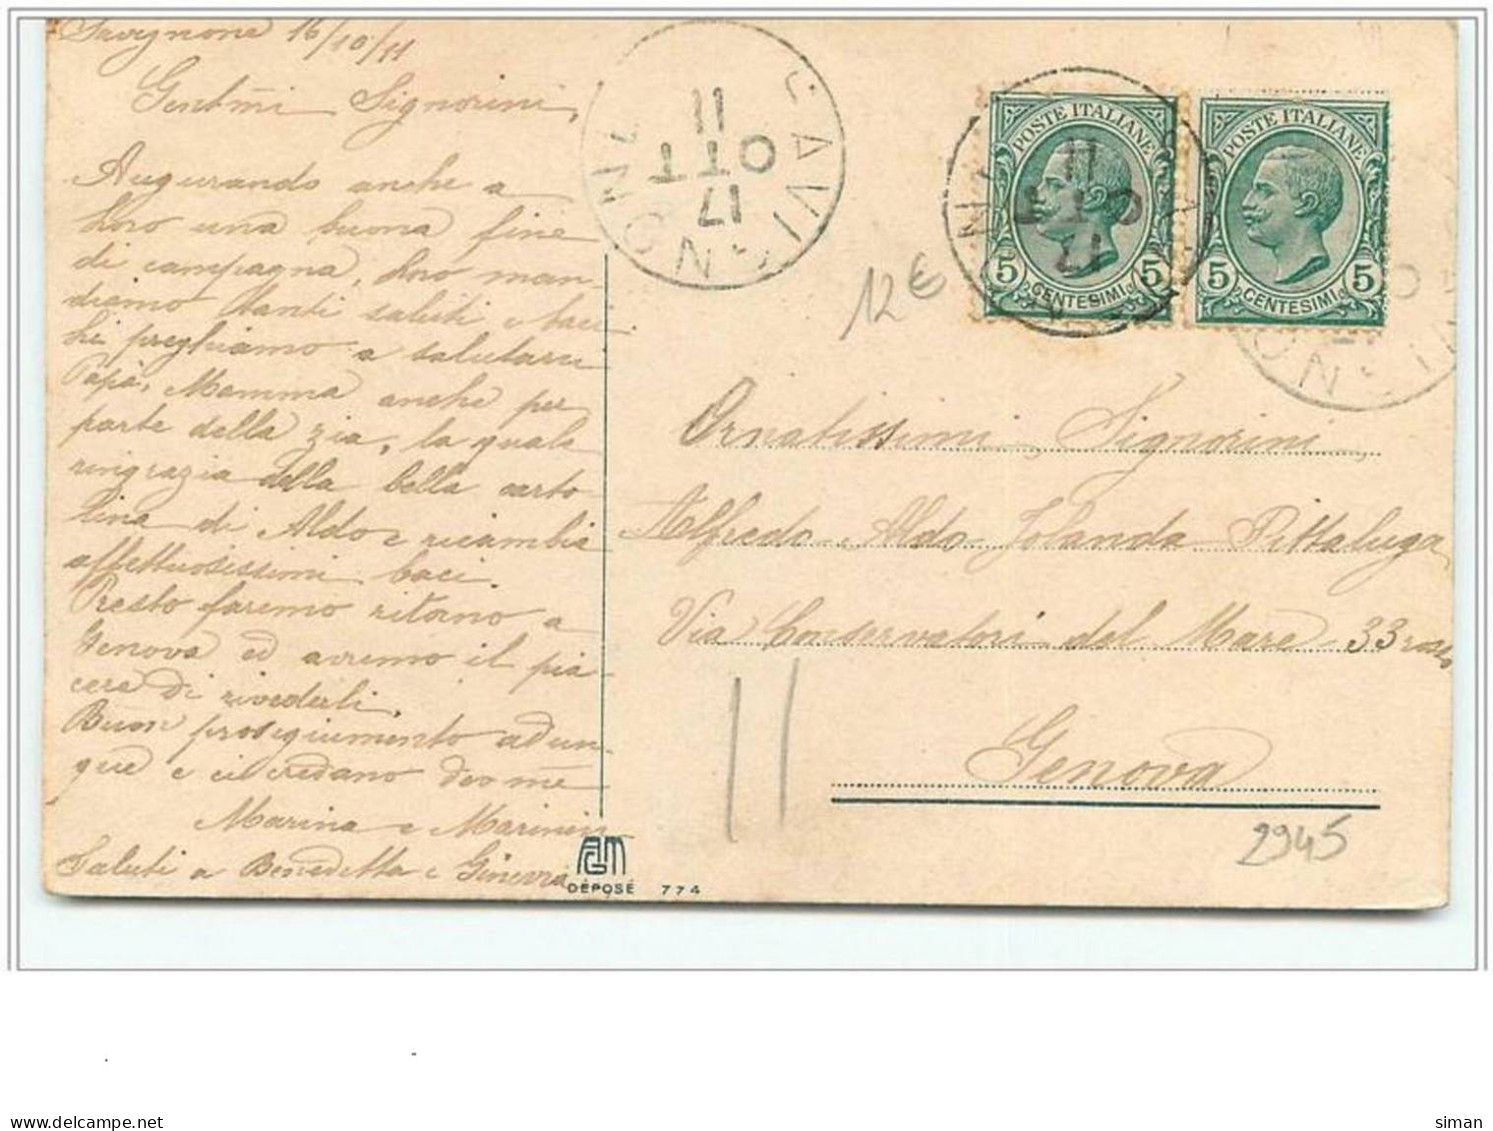 Savignone 16/10/11
Gentmi Signorini,
Augurando anche a
loro una buona fine
di campagna, loro man-
diamo tanti saluti e baci
che preghiamo a salutare
Papà, Mamma anche per
parte della zia, la quale
ringrazia della bella carto
lina di Aldo e ricambia
affettuosissimi baci.
Presto faremo ritorno a
Genova ed avremo il pia-
cere di rivederli.
Buon proseguimento adun-
que e ci credano
Marina e
Saluti a Benedetta e Ginevra
SAVIGNONE
17
OTT
11
POSTE ITALIANE
5 CENTESIMI 5
POSTE ITALIANE
5 CENTESIMI 5
17
OTT
11
12€
Ornatissimi Signorini
Alfredo Aldo Iolanda Pittaluga
Via Conservatori del Mare 33 rosso
Genova
11
2945
DÉPOSÉ 774
siman
delcampe.net